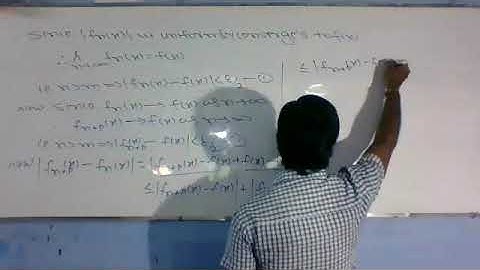 Since {fn(x)} is uniformly converges to f(x)
∴ lt n→∞ fn(x) = f(x)
ie n>m ⇒ |fn(x) - f(x)| < ε/2 — ①
now since fn(x) → f(x) as n→∞
fn+p(x) → f(x) as n→∞
ie n>m ⇒ |fn+p(x) - f(x)| < ε/2
now |fn+p(x) - fn(x)| = |fn+p(x) - f(x) + f(x)
≤ |fn+p(x) - f(x)| + |f
≤ |fn+p(x) - f